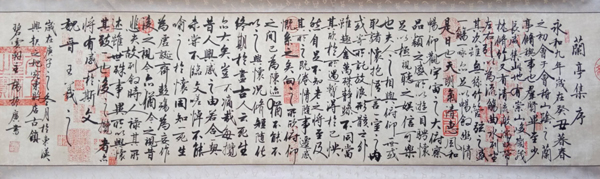 蘭亭集序
永和九年歲在癸丑暮春
之初會于會稽山陰之蘭
亭脩禊事也群賢畢至少
長咸集此地有崇山
左右引以為流觴曲水列坐
一觴一詠亦足以暢敘幽情
是日也天朗氣清惠風和
暢仰觀宇宙之大俯察
品類之盛所以遊目騁懷
足以極視聽之娛信可樂
也夫人之相與俯仰一世或
取諸懷抱悟言一室之內
或因寄所託放浪形骸之外
雖趣舍萬殊靜躁不同當
其欣於所遇暫得於己快
然自足不知老之將至及
其所之既惓情隨事遷感
慨係之矣向之所欣俯仰
之間已為陳迹猶不能不
以之興懷況脩短隨化
終期於盡古人云死生
亦大矣豈不痛哉每攬
昔人興感之由若合一契
未嘗不臨文嗟悼不能
喻之於懷固知死生
為虛誕齊彭殤為妄作
後之視今亦猶今之視昔
悲夫故列敘時人錄其所
述雖世殊事異所以興懷
其致一也後之攬者亦
將有感於斯文
魏晉 王羲之